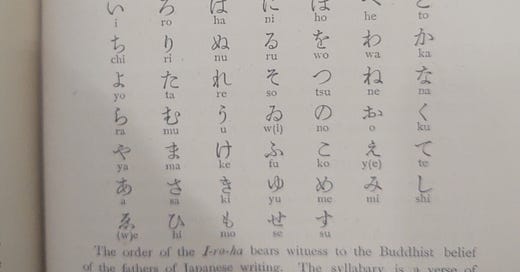 い ろ は に ほ へ と
i ro ha ni ho he to
ち り ぬ る を わ か
chi ri nu ru wo wa ka
よ た れ そ つ ね な
yo ta re so tsu ne na
ら む う ゐ の お く
ra mu u w(i) no o ku
や ま け ふ こ え て
ya ma ke fu ko y(e) te
あ さ き ゆ め み し
a sa ki yu me mi shi
ゑ ひ も せ す
(w)e hi mo se su
The order of the I-ro-ha bears witness to the Buddhist belief
of the fathers of Japanese writing. The syllabary is a verse of